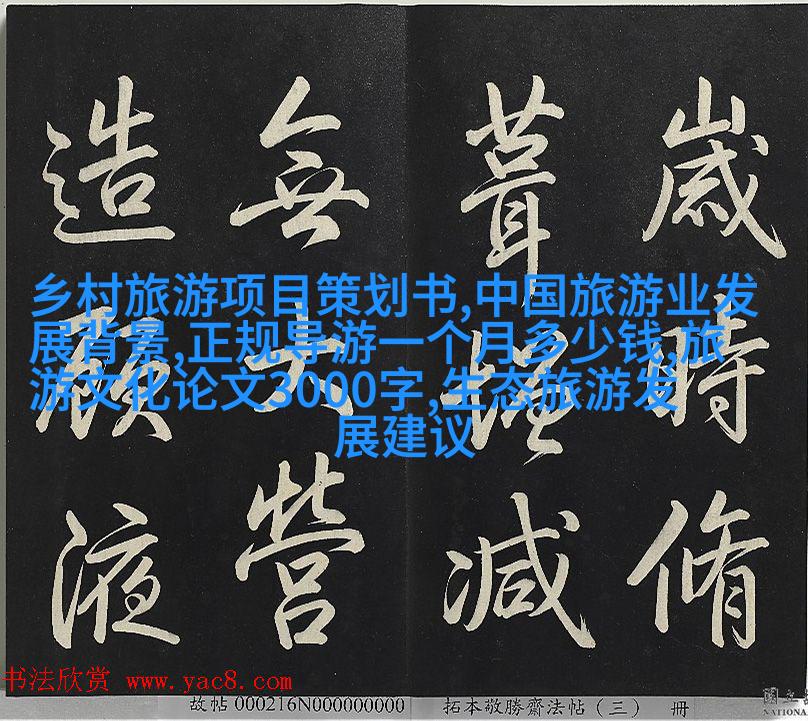 歲時脩
葺增減
無大營
造液
乡村旅游项目策划书,中国旅游业发
展背景,正规导游一个月多少钱,旅
游文化论文3000字,生态旅游发
展建议
书法欣赏 www.yac8.com
故帖 000216N000000000 拓本敬勝齋法帖 (三) 冊
國立
NATIONA